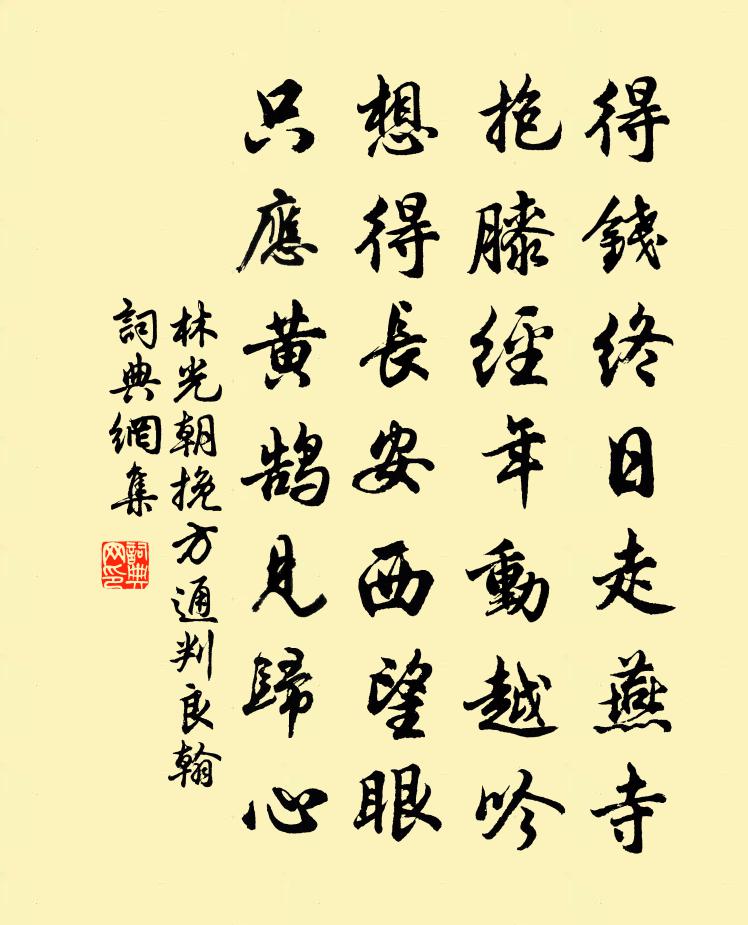 得錢終日走燕寺
抱膝經年動越吟
想得長安西望眼
只應黃鵠見歸心
林光朝挽方通判良翰
詞典網集
詞典网印